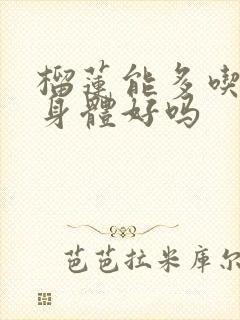 榴蓮能多喫
身體好吗
芭芭拉米库尔